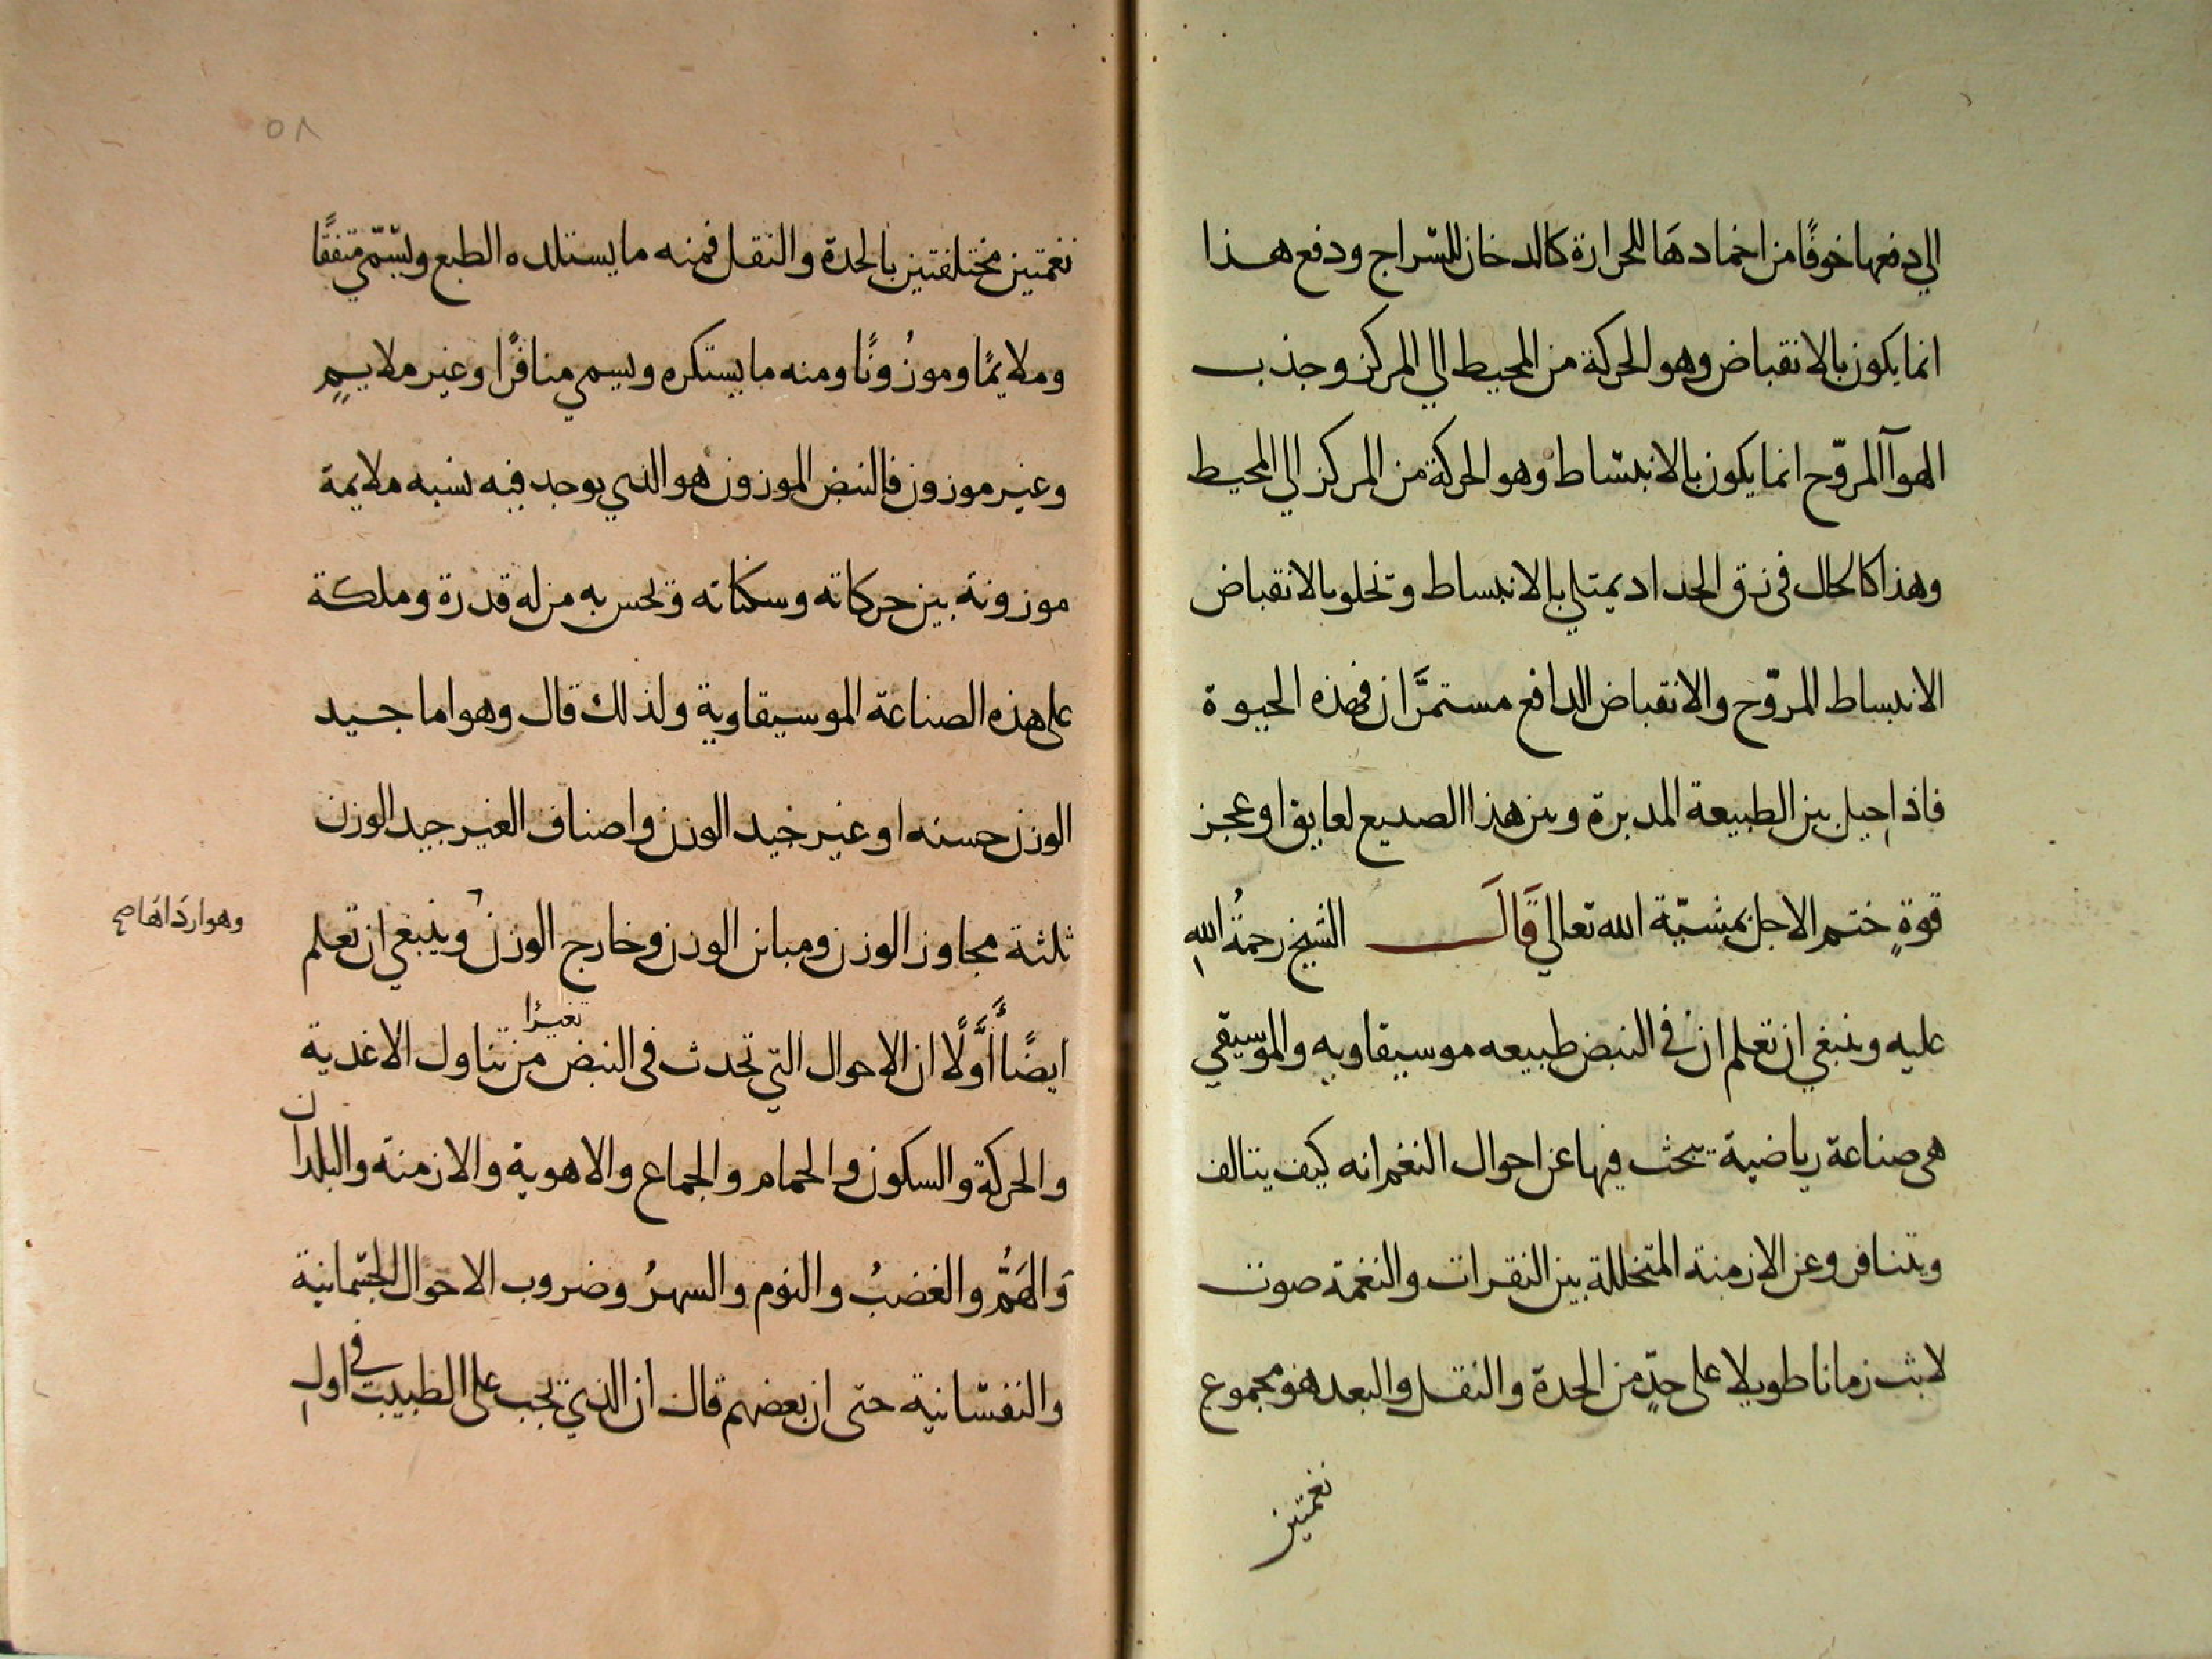 الي دفعها خوفًا من اخمادهَا للحرارة كالدخان للسّراج ودفع هذا
انما يكون بالانقباض وهو الحركة من المحيط الي المركز وجذب
الهوآ المروّح انما يكون بالانبسَاط وهو الحركة من المركز الي المحيط
وهذا كالحال في زق الحداد يمتلي بالانبساط وتخلو بالانقباض
الانبساط المروّح والانقباض الدافع مستمرَّان في هذه الحيوة
فاذا حيل بين الطبيعة المدبرة وبين هذا الصنيع لعايق او عجز
قوةٍ ختم الاجل بمشيّة الله تعالي قَالَ الشيخ رحمةُ اللهِ
عليه وينبغي ان تعلم ان في النبض طبيعه موسيقاويه والموسيقي
هي صناعة رياضية يبحث فيها عن احوال النغم انه كيف يتالف
ويتنافر وعن الازمنة المتخللة بين النقرات والنغمة صوت
لابث زمانا طويلا على حدٍّ من الحدة والثقل والبعد هو مجموع
نغمتين
٥٨
نغمتين مختلفتين بالحدة والثقل فمنه ما يستلذه الطبع ويسَمّي متفقًا
وملايمًا وموزُونًا ومنه ما يستكره ويسمي منافرًا وغير ملايمٍ
وغير موزون فالنبض الموزون هو الذي يوجد فيه نسبه ملايمة
موزونة بين حركاته وسكناته وتحس به من له قدرة وملكة
على هذه الصناعة الموسيقاوية ولذلك قال وهو اما جيد
الوزن حسنه او غير جيد الوزن واصناف الغير جيد الوزن
ثلثة مجاوز الوزن ومباين الوزن وخارج الوزن وينبغي ان تعلم
وهو اردَاهَا صح
ايضًا أَوَّلًا ان الاحوال التي تحدث في النبض تغيرًا من تناول الاغدية
والحركة والسكون والحمام والجماع والاهوية والازمنة والبلدان
وَالهَمُّ والغضبُ والنوم والسهرُ وضروب الاحوال الجسمانية
والنفسَانية حتى ان بعضهم قال ان الذي تجب على الطبيب في اول